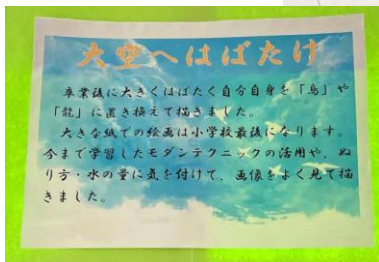 大空へはばたけ
卒業後に大きくはばたく自分自身を「鳥」や
「龍」に置き換えて描きました。
大きな紙での絵画は小学校最後になります。
今まで学習したモダンテクニックの活用や、ぬ
り方・水の量に気を付けて、画像をよく見て描
きました。